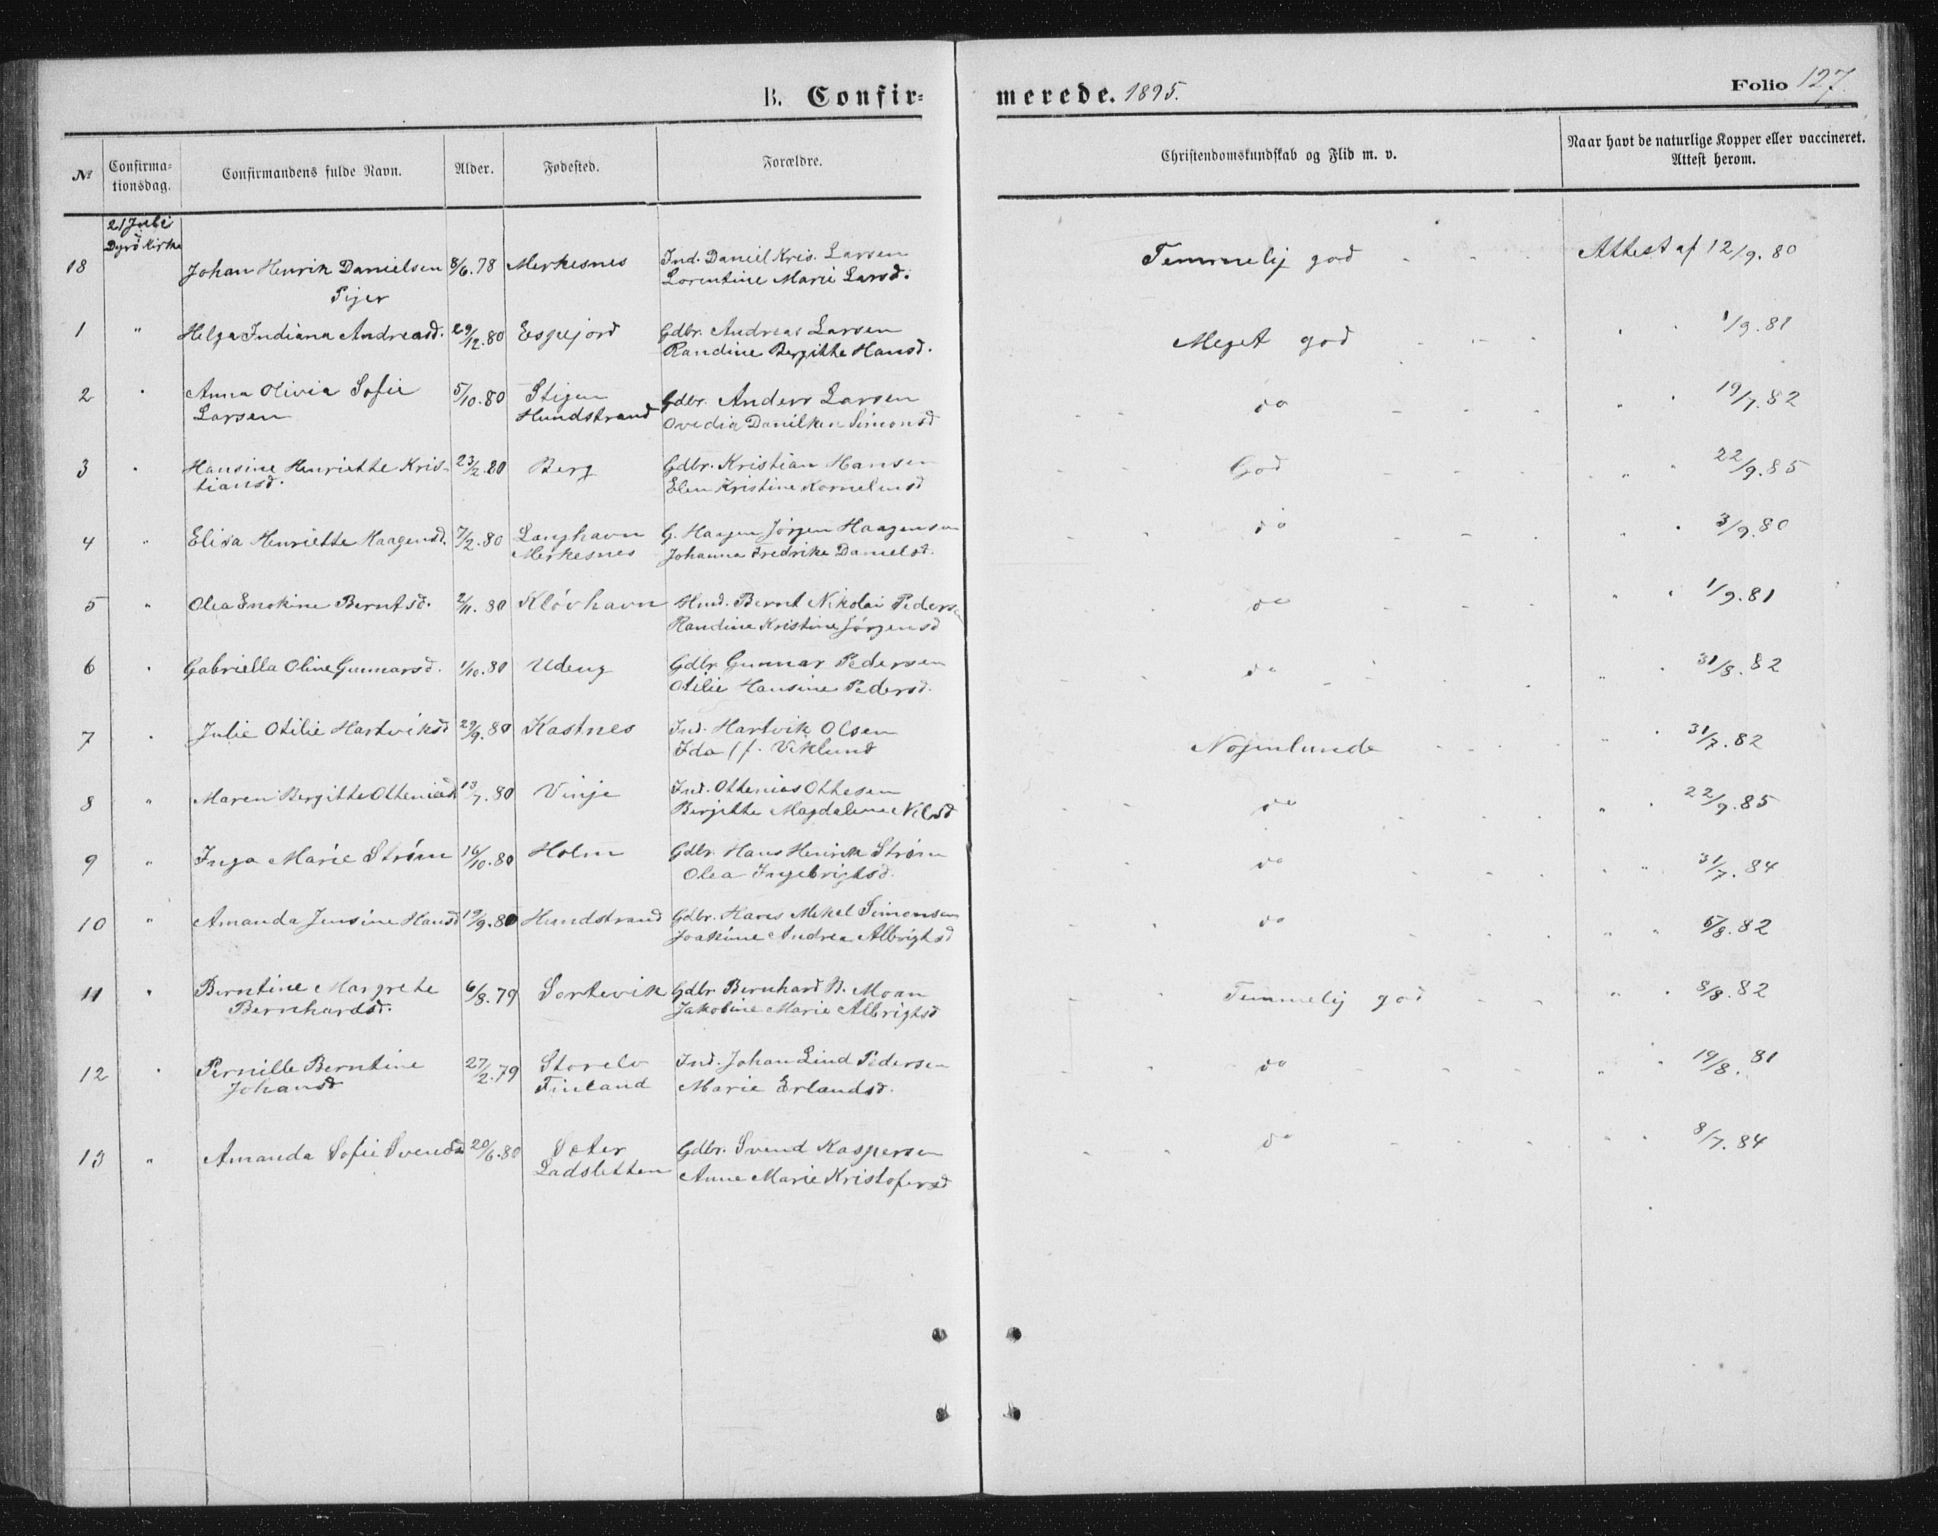 B. Confir= merede. 1895. Folio 127.
№ Confirma= tionsdag. Confirmandens fulde Navn. Alder. Fødested. Forældre. Christendomskundskab og Flid m. v. Naar havt de naturlige Kopper eller vaccineret. Attest herom.
21 Juli
Dyrö Kirke
18 Johan Henrik Danielsen 8/6.78 Merkesnes Ind. Daniel Kris. Larsen Temmelig god Attest af 12/9.80
Lorentine Marie Larsd.
Piger
1 " Helga Indiana Andreasd. 29/12.80 Espejord Gdbr. Andreas Larsen Meget god " " 1/9.81
Randine Bergitte Hansd.
2 " Anna Olivia Sofie 5/10.80 Stigen Gdbr. Anders Larsen do " " 19/7.82
Larsen Hundstrand Ovedia Danilken Simonsd
3 " Hansine Henriette Kris- 23/2.80 Berg Gdbr. Kristian Hansen God " " 22/9.85
tiansd. Elen Kristine Kornelusd
4 " Elisa Henriette Haagensd. 7/2.80 Langhavn G. Haagen Jörgen Haagensen do " " 3/9.80
Merkesnes Johanna Fredrike Danielsd.
5 " Olea Enokine Berntsd. 2/11.80 Klövhavn Hmd. Bernt Nikolai Pedersen do " " 1/9.81
Randine Kristine Jörgensd
6 " Gabriella Oline Gunnarsd. 1/10.80 Udeng Gdbr. Gunnar Pedersen do " " 31/8.82
Otilie Hansine Pedersd.
7 " Julie Otilie Hartviksd 29/9.80 Kastnes Ind. Hartvik Olsen Nogenlunde " " 31/7.82
Ida f. Viklund
8 " Maren Bergitte Otteniasd 13/7.80 Vinje Ind. Ottenias Ottesen do " " 22/9.85
Bergitte Magdalene Nilsd
9 " Inga Marie Strøm 16/10.80 Holm Gdbr. Hans Henrik Strøm do " " 31/7.84
Olea Ingebrigtsd.
10 " Amanda Jensine Hansd 19/9.80 Hundstrand Gdbr. Hans Mikal Simonsen do " " 5/8.82
Joakime Andrea Albrigtsd
11 " Berntine Margrete 6/8.79 Sortevik Gdbr. Bernhard B. Moan Temmelig god " " 8/8.82
Bernhardsd. Jakobine Marie Albrigtsd
12 " Pernille Berntine 27/2.79 Storelv Ind. Johan Lind Pedersen do " " 19/8.81
Johansd Finland Marie Erlandsd.
13 " Amanda Sofie Svendsd 20/6.80 Sæter Gdbr. Svend Kaspersen do " " 8/7.84
Ladsletten Anne Marie Kristofersd